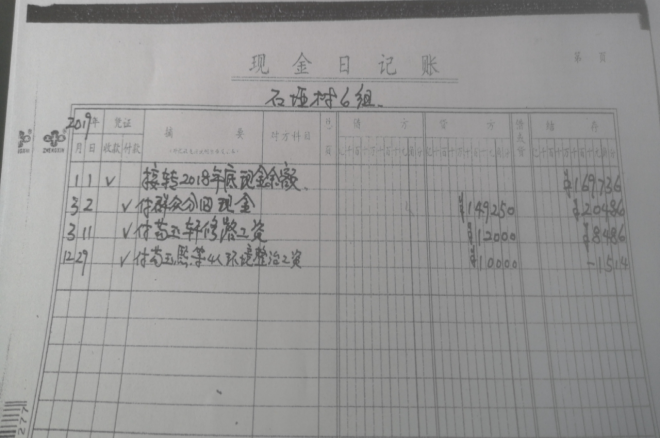 现金日记账
第 页
石垭村6组
2019年 凭证 摘要 对方科目 借方 贷方 结存
月 日 收款 付款
1 1 √ 接转2018年底现金余额 ¥169736
3 2 √ 付群众分田现金 ¥149250 ¥20486
3 11 √ 付苟玉轩修路工资 ¥12000 ¥8486
12 29 √ 付苟玉熙等4人环境整治工资 ¥10000 -1514